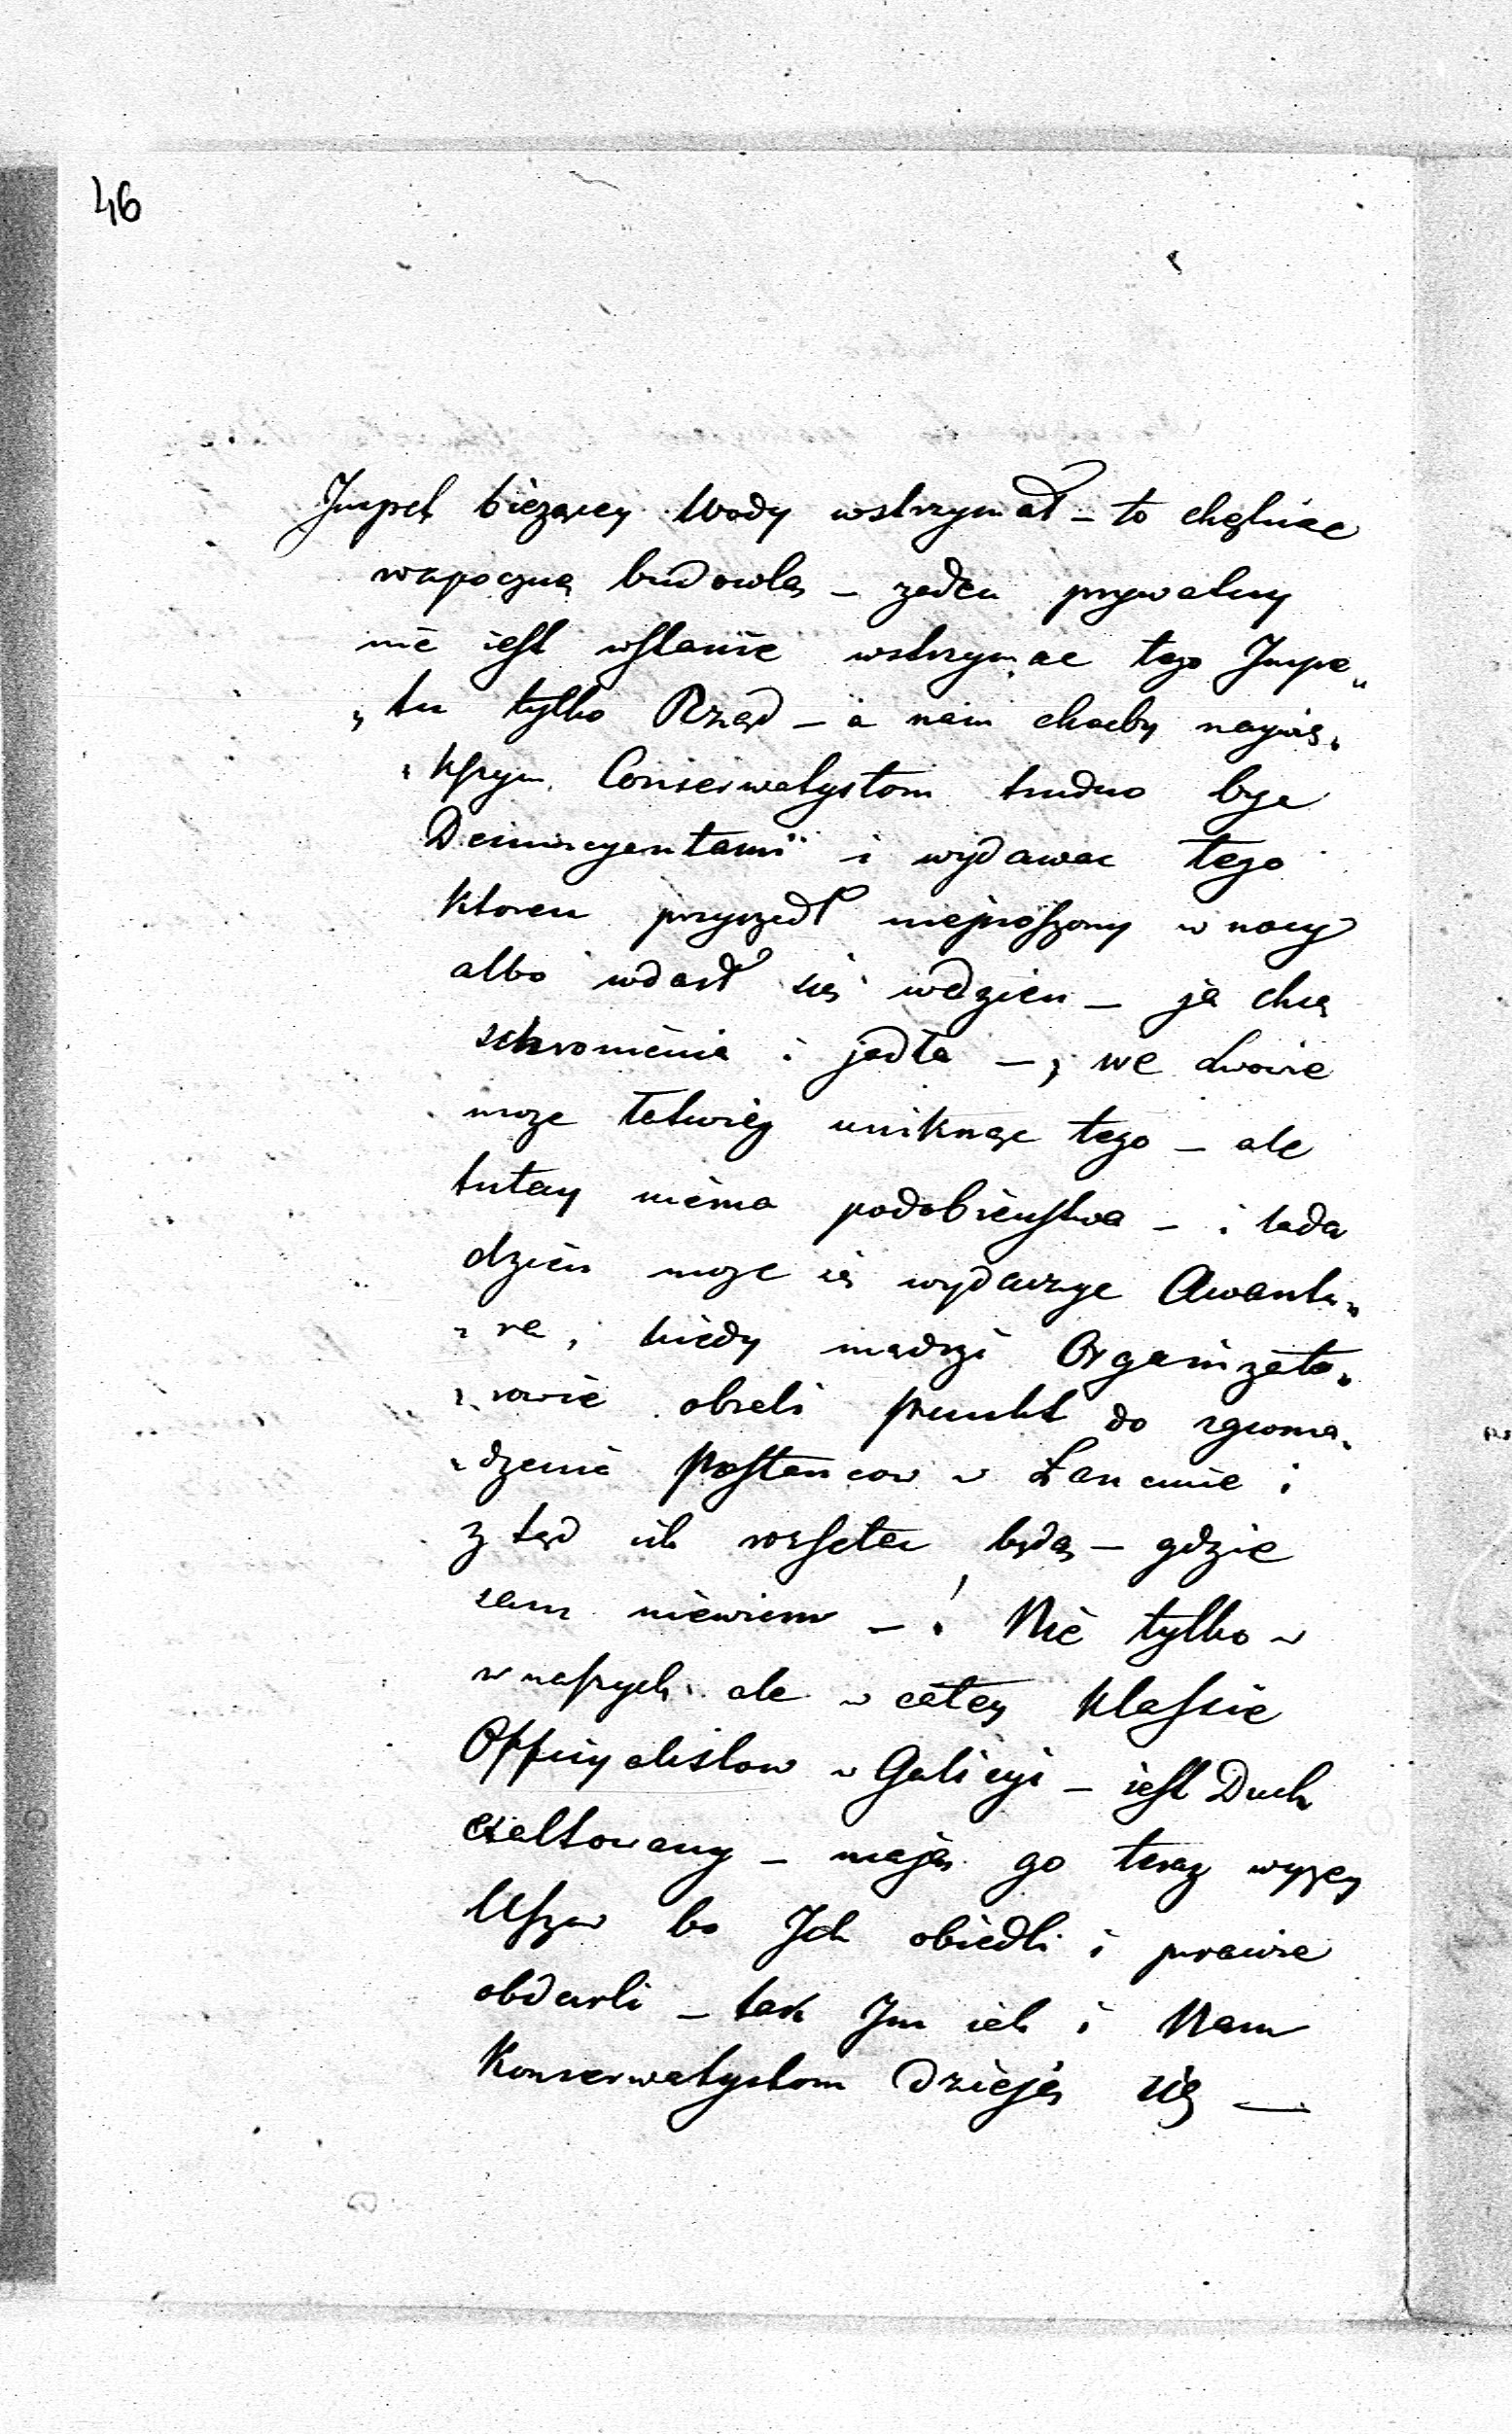 46
Impet bieżącey Wody wstrzymał – to chętnie
rozpoczną budowlą – żaden prywatny
nie iest wstanie wstrzymac tego Impe„
„tu tylko Rząd – a nam choćby naywię„
„kszym Conserwatystom trudno byc
Denuncyantami i wydawac tego
ktoren przyszedł nieproszony w nocy
albo wdarł się wdzien – ja chcą
schronienia i jadła –, we Lwowie
moze łatwiey uniknąc tego – ale
tutay niema podobienstwa – i lada
dzień moze się wydarzyc Awantu„
„ra, kiedy mądrzi Organizato„
„rowie obrali punkt do zgroma„
„dzenia Postancow w Łancucie i
z tąd ich rossełac będą – gdzie
sam niewiem – ! Nie tylko w
w naszych ale w całey Klassie
Officyalistow w Galicyi – iest Duch
exaltowany – mają go teraz wyzey
Uszow bo Ich obiedli i prawie
obdarli – tak Im ich i Nam
Konserwatystom dzieją się —